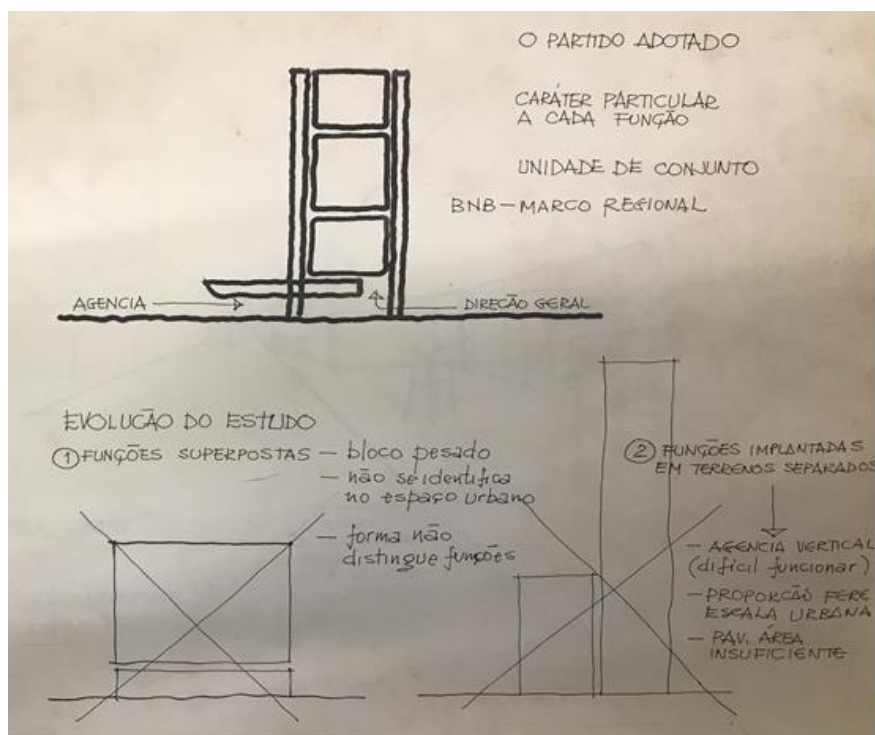 O PARTIDO ADOTADO
CARÁTER PARTICULAR
A CADA FUNÇÃO
UNIDADE DE CONJUNTO
BNB — MARCO REGIONAL
AGENCIA
DIREÇÃO GERAL
EVOLUCÃO DO ESTUDO
1 FUNÇÕES SUPERPOSTAS — bloco pesado
— não se identifica
no espaço urbano
— forma não
distingue funções
2 FUNÇÕES IMPLANTADAS
EM TERRENOS SEPARADOS
— AGENCIA VERTICAL
(difícil funcionar)
— PROPORCÃS FERE
ESCALA URBANA
— PAV. ÁREA
INSUFICIENTE